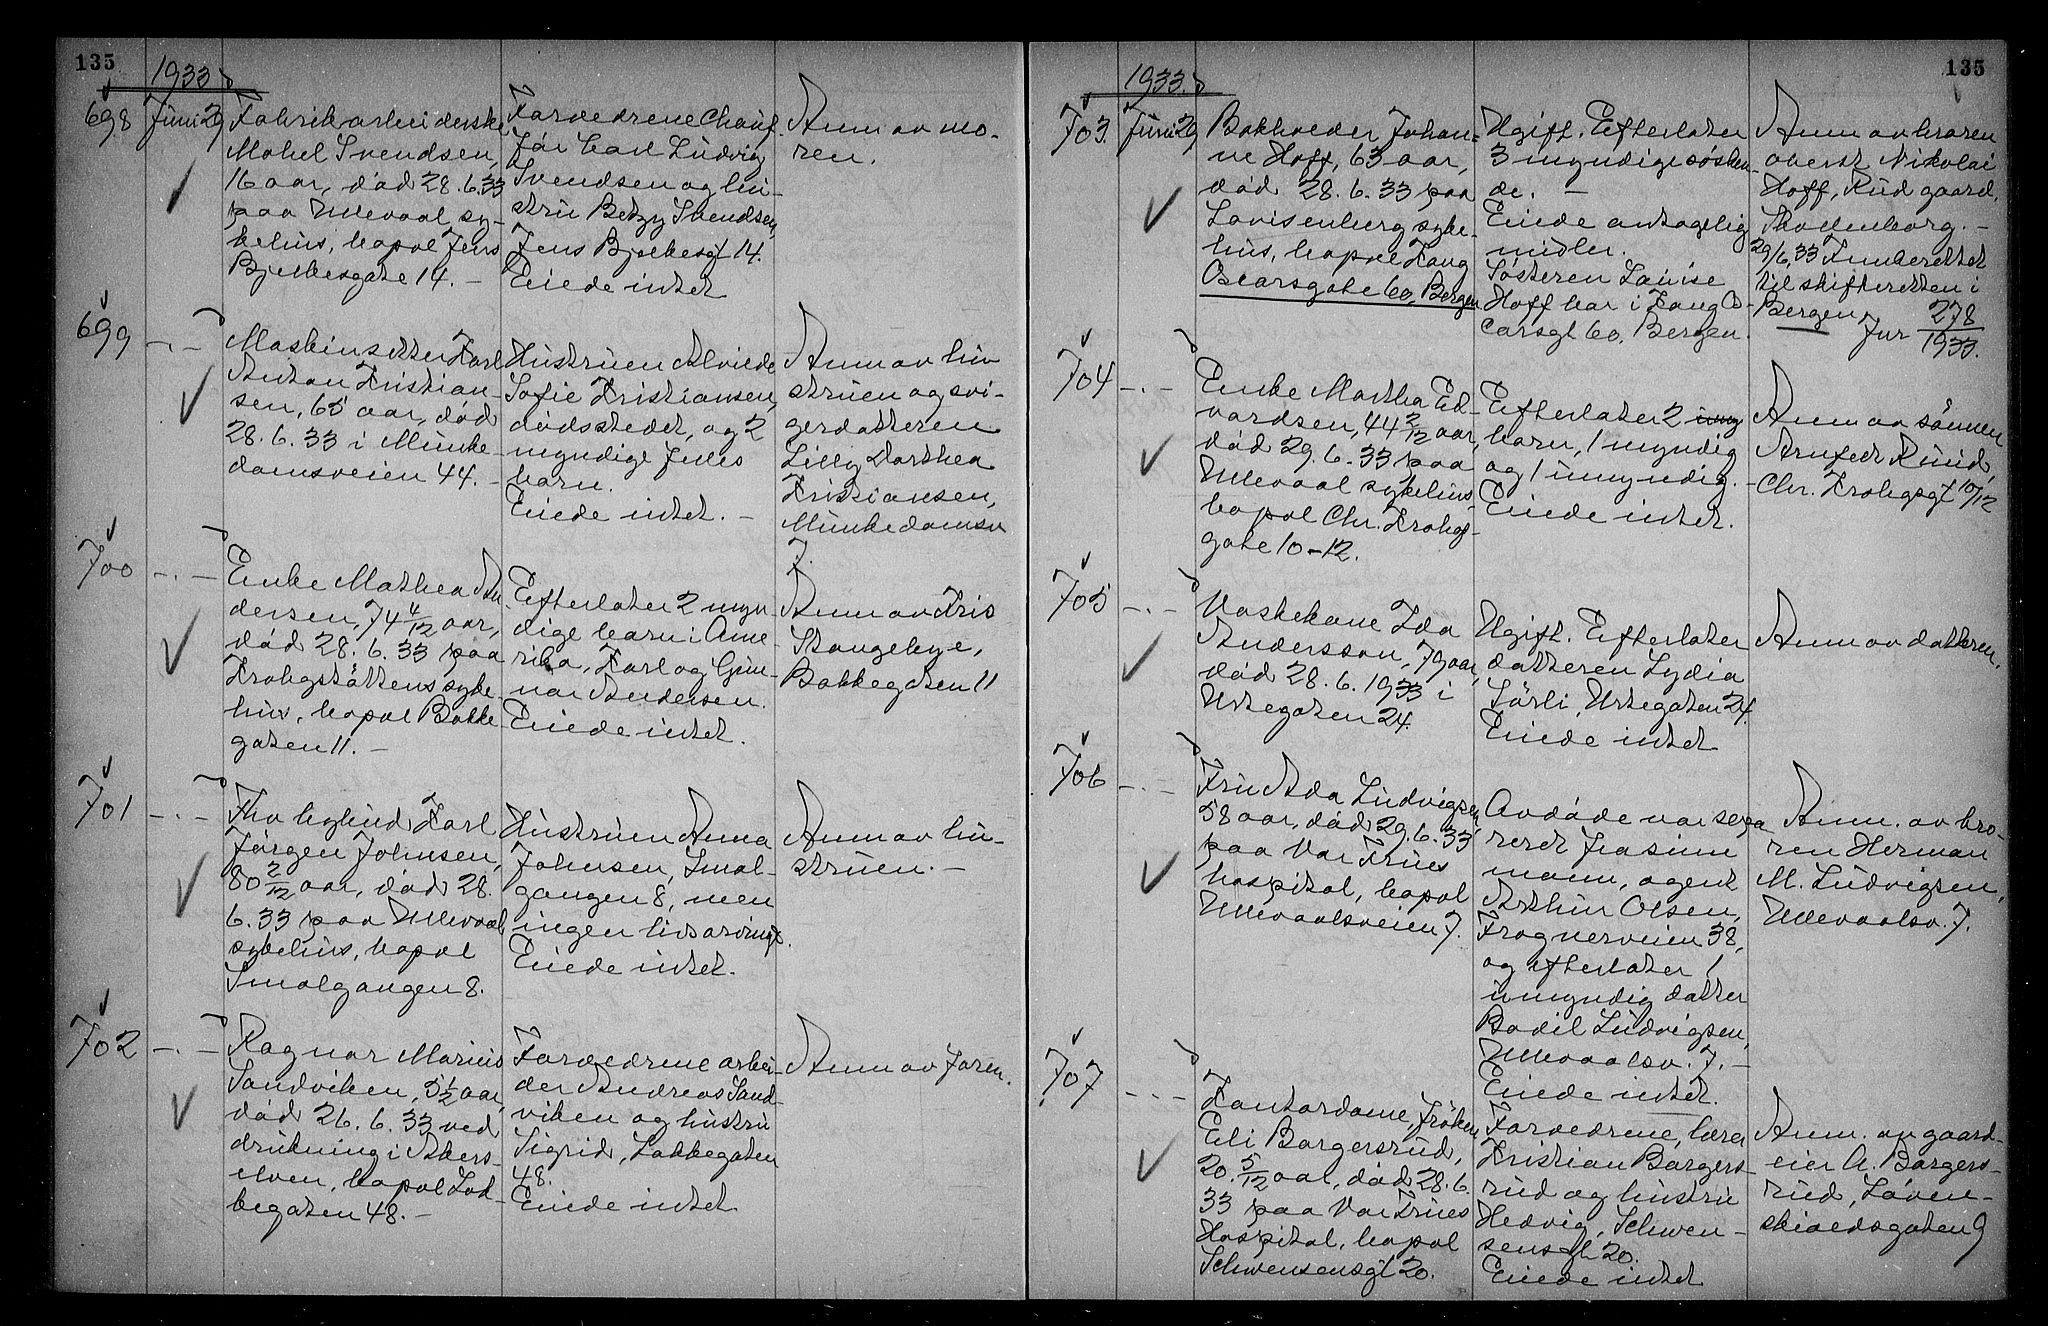 135
1933
698 Juni 29
Fabrikarbeiderske
Mabel Svendsen,
16 aar, död 28.6.33
paa Ullevaal sy-
kehus, bopæl Jens
Bjelkesgate 14. -
Forældrene Chauf-
för Carl Ludvig
Svendsen og hu-
stru Betzy Svendsen,
Jens Bjelkesgt 14.
Eiede intet
Anm av mo-
ren.
699 -.-
Maskinsetter Karl
Anton Kristian-
sen, 65 aar, död
28.6.33 i Munke-
damsveien 44. -
Hustruen Alviede
Sofie Kristiansen,
dödsstedet, og 2
myndige felles
barn.
Eiede intet. -
Anm av hu
struen og svi-
gerdatteren
Lilly Dorthea
Kristiansen,
Munkedamsv
7.
700 -.-
Enke Mathea An-
dersen, 74 4/12 aar,
död 28.6.33 paa
Krohgstöttens syke-
hus, bopæl Bakke
gaten 11. -
Efterlater 2 myn-
dige barn i Ame
rika, Karl og Gun-
nar Andersen.
Eiede intet.
Anm av Kris
Stangebye,
Bakkegaten 11
701 -.-
Fhv bybud Karl
Jørgen Johnsen,
80 2/12 aar, död 28.
6.33 paa Ullevaal
sykehus, bopæl
Smalgangen 8.
Hustruen Anna
Johnsen, Smal-
gangen 8, men
ingen livsarving.
Eiede intet.
Anm av hu-
struen. -
702 -.-
Ragnar Marius
Sandviken, 5 1/2 aar,
död 26.6.33 ved
drukning i Akers-
elven, bopæl Lak-
kegaten 48. -
Forældrene arbei-
der Andreas Sand-
viken og hustru
Sigrid, Lakkegaten
48.
Eiede intet
Anm av faren.
135
1933.
703 Juni 29
Bokholder Johan-
ne Hoff, 63 aar,
död 28.6.33 paa
Lovisenberg syke-
hus, bopæl Kong
Oscarsgate 60, Bergen
Ugift. Efterlater
3 myndige søsken-
de. -
Eiede antagelig
midler.
Søsteren Louise
Hoff bor i Kong Os-
carsgt 60, Bergen.
Anm av broren
oberst Nikolai
Hoff, Rud gaard,
Skollenborg. -
29/6.33 Innberettet
til skifteretten i
Bergen.
Jnr 278
1933.
704 -.-
Enke Martha Ed-
vardsen, 44 2/12 aar,
död 29.6.33 paa
Ullevaal sykehus,
bopæl Chr. Krohgs-
gate 10-12.
Efterlater 2
barn, 1 myndig
og 1 umyndig. -
Eiede intet.
Anm av sönnen
Arnfelt Ruud,
Chr. Krohgsgt 10/12
705 -.-
Vaskekone Ida
Andersson, 79 aar,
död 28.6.1933 i
Urtegaten 24.
Ugift. Efterlater
datteren Lydia
Sörli, Urtegaten 24.
Eiede intet
Anm av datteren.
706 -.-
Fru Ada Ludvigsen,
58 aar, död 29.6.33
paa Vor Frues
hospital, bopæl
Ullevaalsveien 7.
Avdöde var sepa
rert fra sin
mann, agent
Arthur Olsen,
Frognerveien 38,
og efterlater 1
umyndig datter
Bodil Ludvigsen,
Ullevaalsv. 7. -
Eiede intet.
Anm. av bro-
ren Herman
M. Ludvigsen,
Ullevaalsv. 7.
707 -.-
Kontordame, fröken
Eli Borgersrud,
20 5/12 aar, död 28.6.
33 paa Vor Frues
Hospital, bopæl
Schwensensgt 20.
Forældrene, lærer
Kristian Borgers-
rud og hustru
Hedvig, Schwen-
sensgt 20.
Eiede intet
Anm. av gaard-
eier A. Borgers-
rud, Löven-
skioldsgaten 9